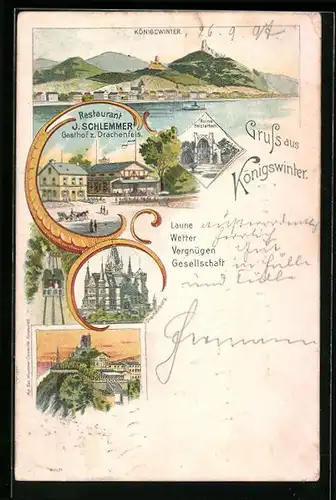 KÖNIGSWINTER.
26.9.97
Restaurant
J. SCHLEMMER
Gasthof z. Drachenfels.
Ruine
Heisterbach
Gruß aus
Königswinter.
Laune außerordentlich
Wetter herrlich
Vergnügen gut
Gesellschaft in Hülle
und Fülle
Hermann